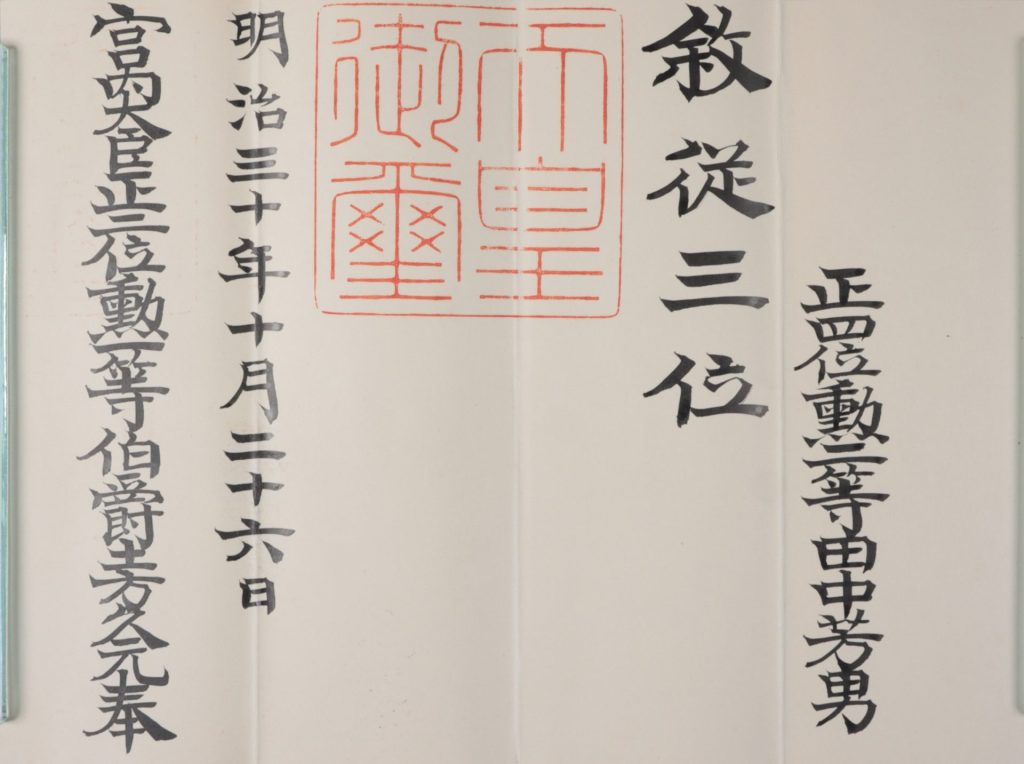 正四位勲三等田中芳男
敘從三位
天皇
御璽
明治三十年十月二十六日
宮内大臣正二位勲一等伯爵土方久元奉